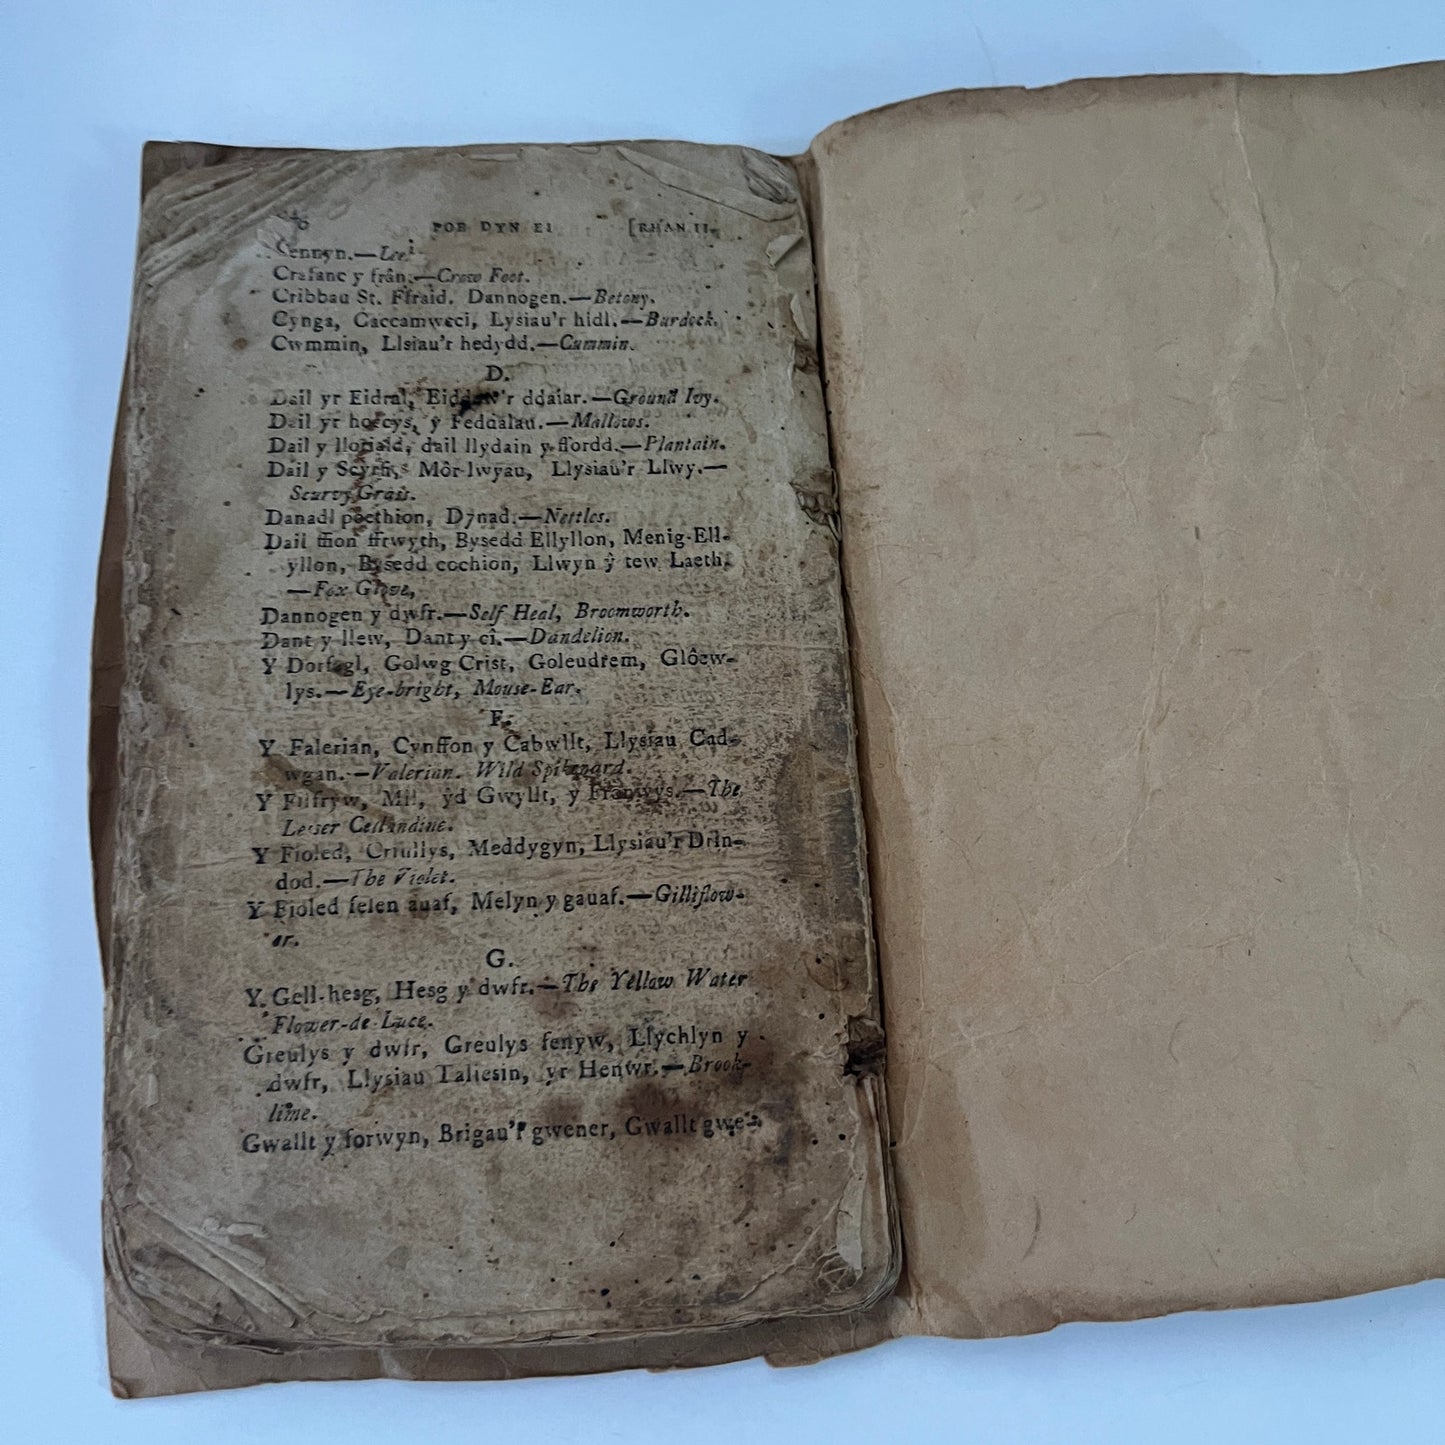 POB DYN EI [RHAN II.
Cennyn.—Leek
Crafanc y frân.—Crow Foot.
Cribbau St. Ffraid, Dannogen.—Betony.
Cynga, Caccamwcci, Lysiau'r hidl.—Burdock.
Cwmmin, Llsiau'r hedydd.—Cummin.
D.
Dail yr Eidral, Eiddew'r ddaiar.—Ground Ivy.
Dail yr hoccys, y Feddalau.—Mallows.
Dail y lloriaid, dail llydain y ffordd.—Plantain.
Dail y Scyrfi, Môr-lwyau, Llysiau'r Llwy.—
Scurvy Grass.
Danadl poethion, Dynad.—Nettles.
Dail ffion ffrwyth, Bysedd Ellyllon, Menig-Ell-
yllon, Bysedd cochion, Llwyn ŷ tew Laeth.
—Fox Glove,
Dannogen y dwfr.—Self Heal, Broomworth.
Dant y llew, Dant y ci.—Dandelion.
Y Dorfagl, Golwg Crist, Goleudrem, Glôew-
lys.—Eye-bright, Mouse-Ear.
F.
Y Falerian, Cynffon y Cabwllt, Llysiau Cad-
wgan.—Valerian. Wild Spikenard.
Y Filfryw, Mil, ŷd Gwyllt, y Fronwys.—The
Lesser Cellandine.
Y Fioled, Crinllys, Meddygyn, Llysiau'r Drin-
dod.—The Violet.
Y Fioled felen auaf, Melyn y gauaf.—Gilliflow-
er.
G.
Y Gell-hesg, Hesg y dwfr.—The Yellow Water
Flower-de-Luce.
Greulys y dwfr, Greulys fenyw, Llychlyn y
dwfr, Llysiau Taliesin, yr Henwr.—Brook-
lime.
Gwallt y forwyn, Brigau'r gwener, Gwallt gwe-